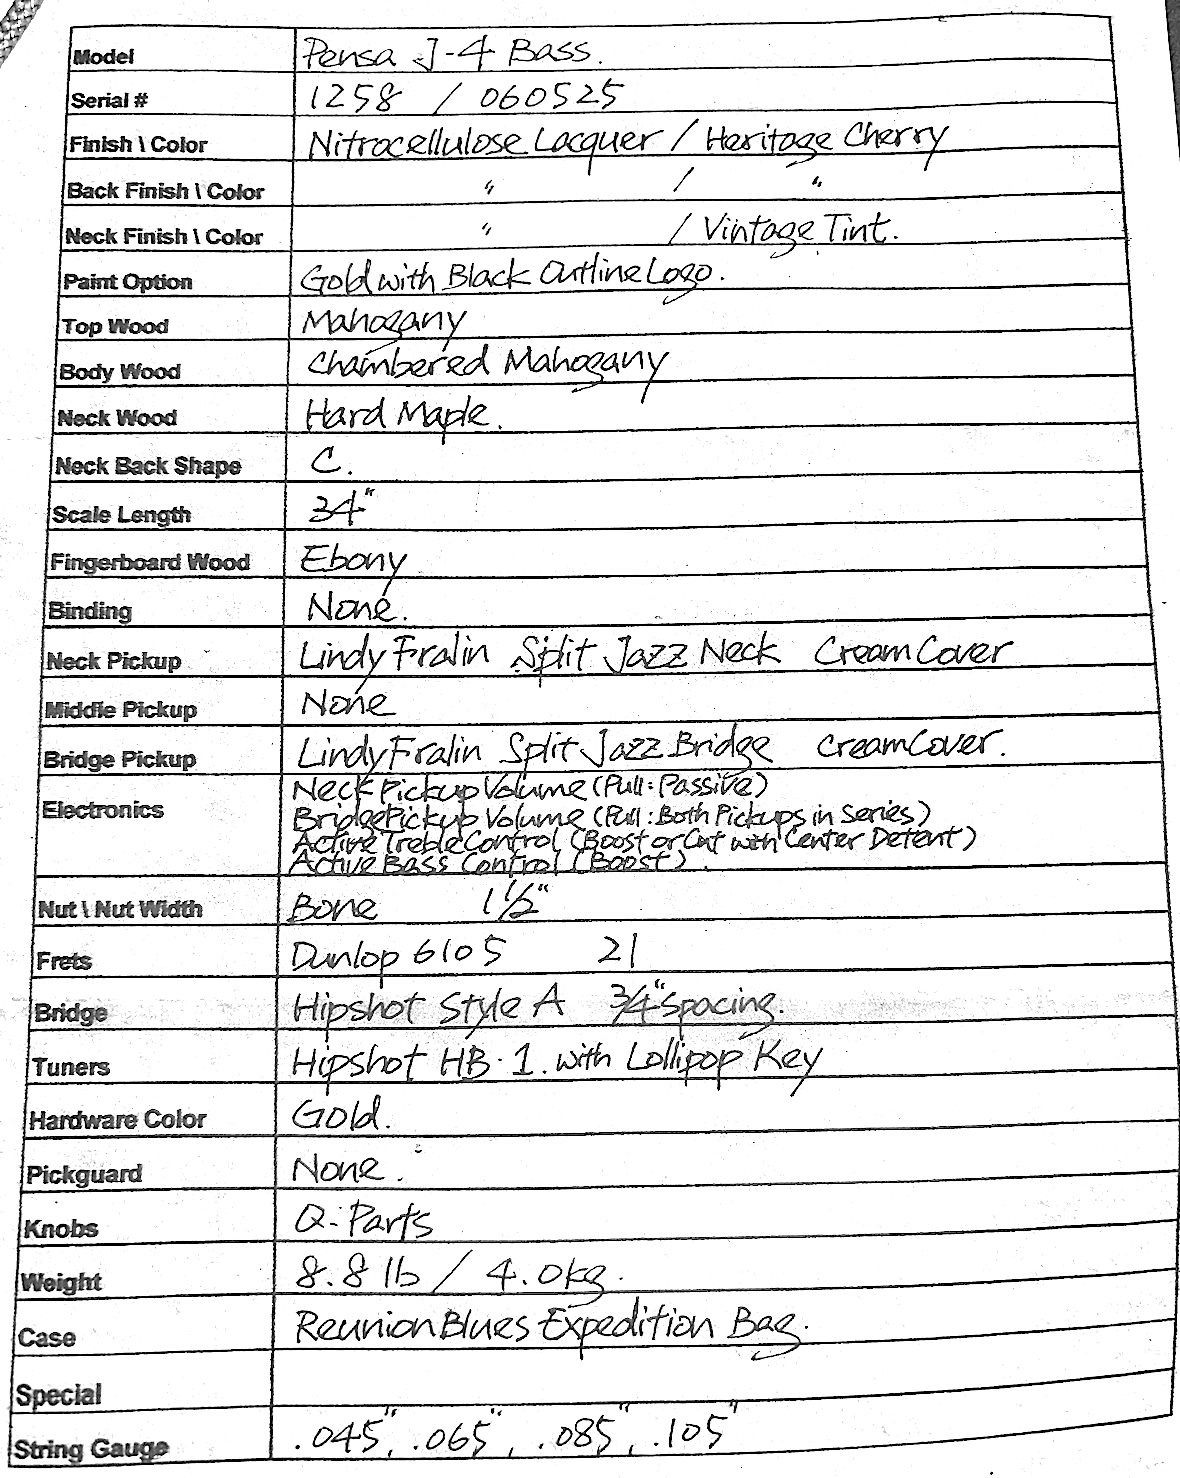 Model Pensa J-4 Bass.
Serial # 1258 / 060525
Finish \ Color Nitrocellulose Lacquer / Heritage Cherry
Back Finish \ Color " / "
Neck Finish \ Color " / Vintage Tint.
Paint Option Gold with Black Outline Logo.
Top Wood Mahogany
Body Wood Chambered Mahogany
Neck Wood Hard Maple.
Neck Back Shape C.
Scale Length 34"
Fingerboard Wood Ebony
Binding None.
Neck Pickup Lindy Fralin Split Jazz Neck Cream Cover
Middle Pickup None
Bridge Pickup Lindy Fralin Split Jazz Bridge Cream Cover.
Electronics Neck Pickup Volume (Pull: Passive)
Bridge Pickup Volume (Pull: Both Pickups in Series)
Active Treble Control (Boost or Cut with Center Detent)
Active Bass Control (Boost).
Nut \ Nut Width Bone 1 1/2"
Frets Dunlop 6105 21
Bridge Hipshot Style A 3/4" Spacing.
Tuners Hipshot HB-1. with Lollipop Key
Hardware Color Gold.
Pickguard None.
Knobs Q-Parts
Weight 8.8 lb / 4.0kg.
Case Reunion Blues Expedition Bag.
Special
String Gauge .045", .065", .085", .105"